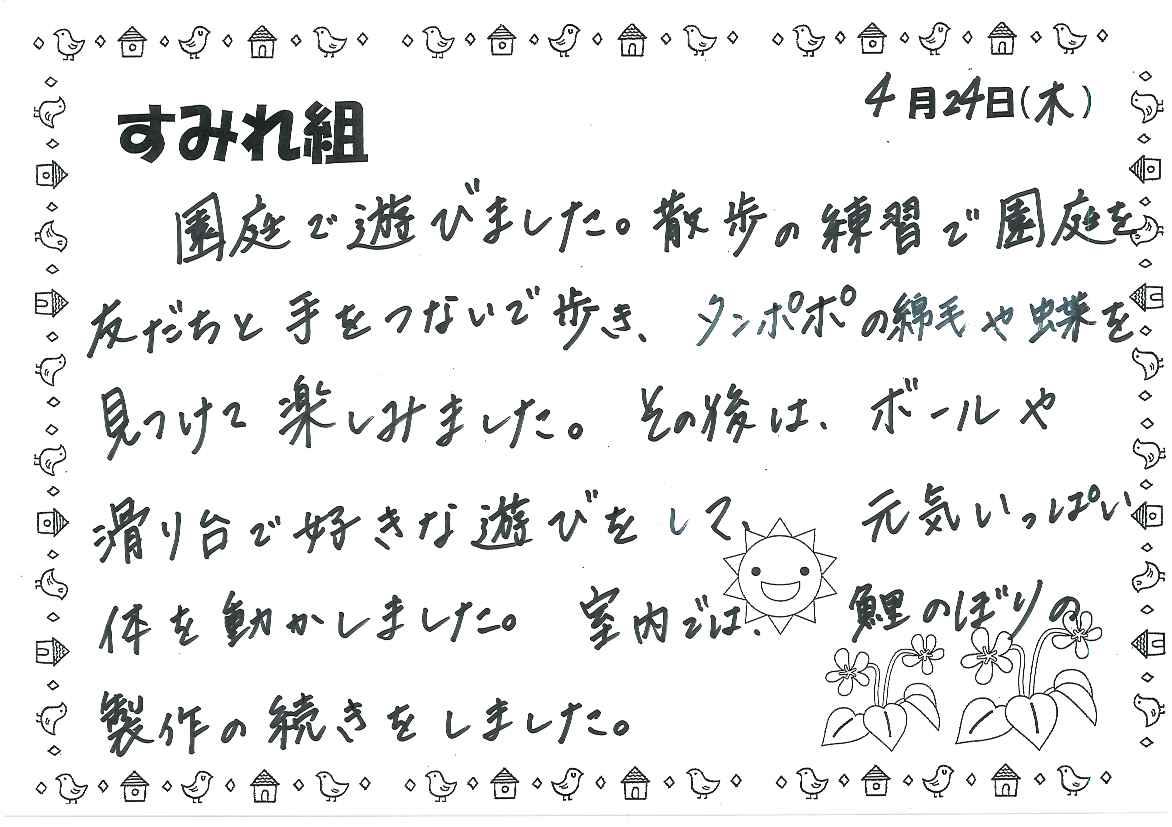 4月24日(木)
すみれ組
園庭で遊びました。散歩の練習で園庭を
友だちと手をつないで歩き、タンポポの綿毛や蝶を
見つけて楽しみました。その後は、ボールや
滑り台で好きな遊びをして、元気いっぱい
体を動かしました。室内では、鯉のぼりの
製作の続きをしました。